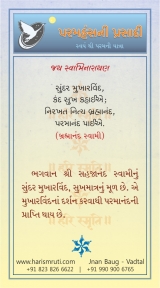 પરબ્રહ્મની પ્રસાદી
જય સ્વામિનારાયણ
સુંદર મુખારવિંદ,
કંદ સુખ કહાઈએ;
નિરખત નિત્ય બ્રહ્માનંદ,
પરમાનંદ પાઈએ.
(બ્રહ્માનંદ સ્વામી)
ભગવાન શ્રી સહજાનંદ સ્વામીનું
સુંદર મુખારવિંદ, સુખમાત્રનું મૂળ છે. એ
મુખારવિંદનાં દર્શન કરવાથી પરમાનંદની
પ્રાપ્તિ થાય છે.
www.harismruti.com Jnan Baug - Vadtal
+91 823 826 6622 | +91 990 900 6765